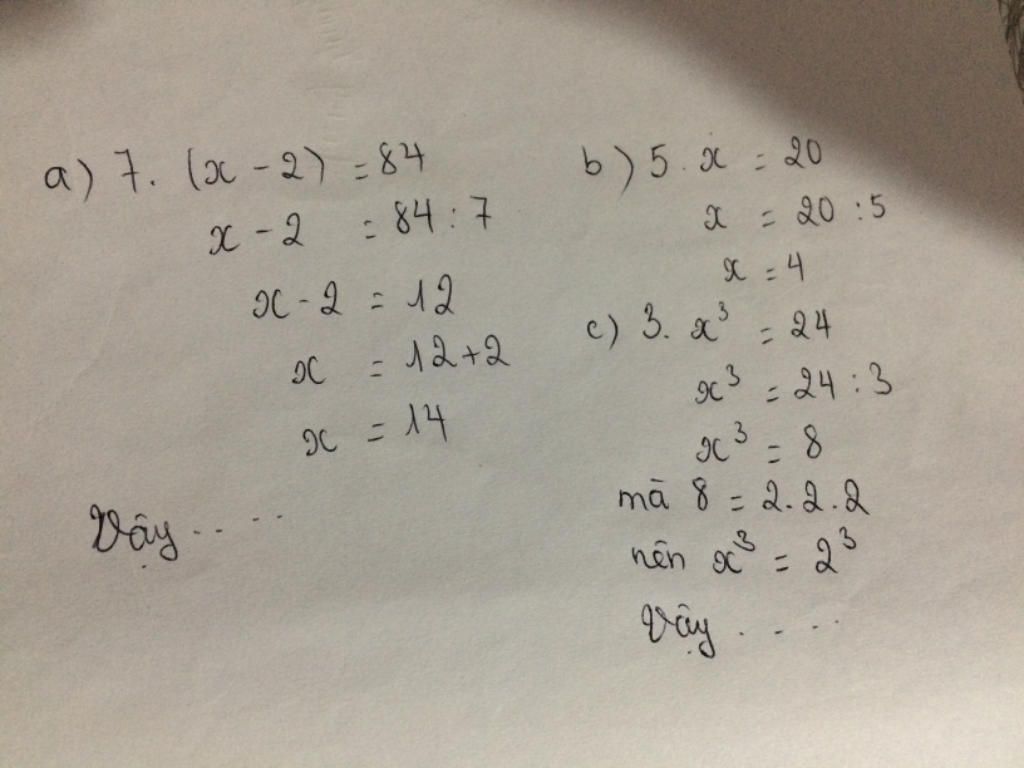 a) 7. (x - 2) = 84
x - 2 = 84 : 7
x - 2 = 12
x = 12 + 2
x = 14
Vậy .....
b) 5. x = 20
x = 20 : 5
x = 4
c) 3. x³ = 24
x³ = 24 : 3
x³ = 8
mà 8 = 2.2.2
nên x³ = 2³
Vậy .....